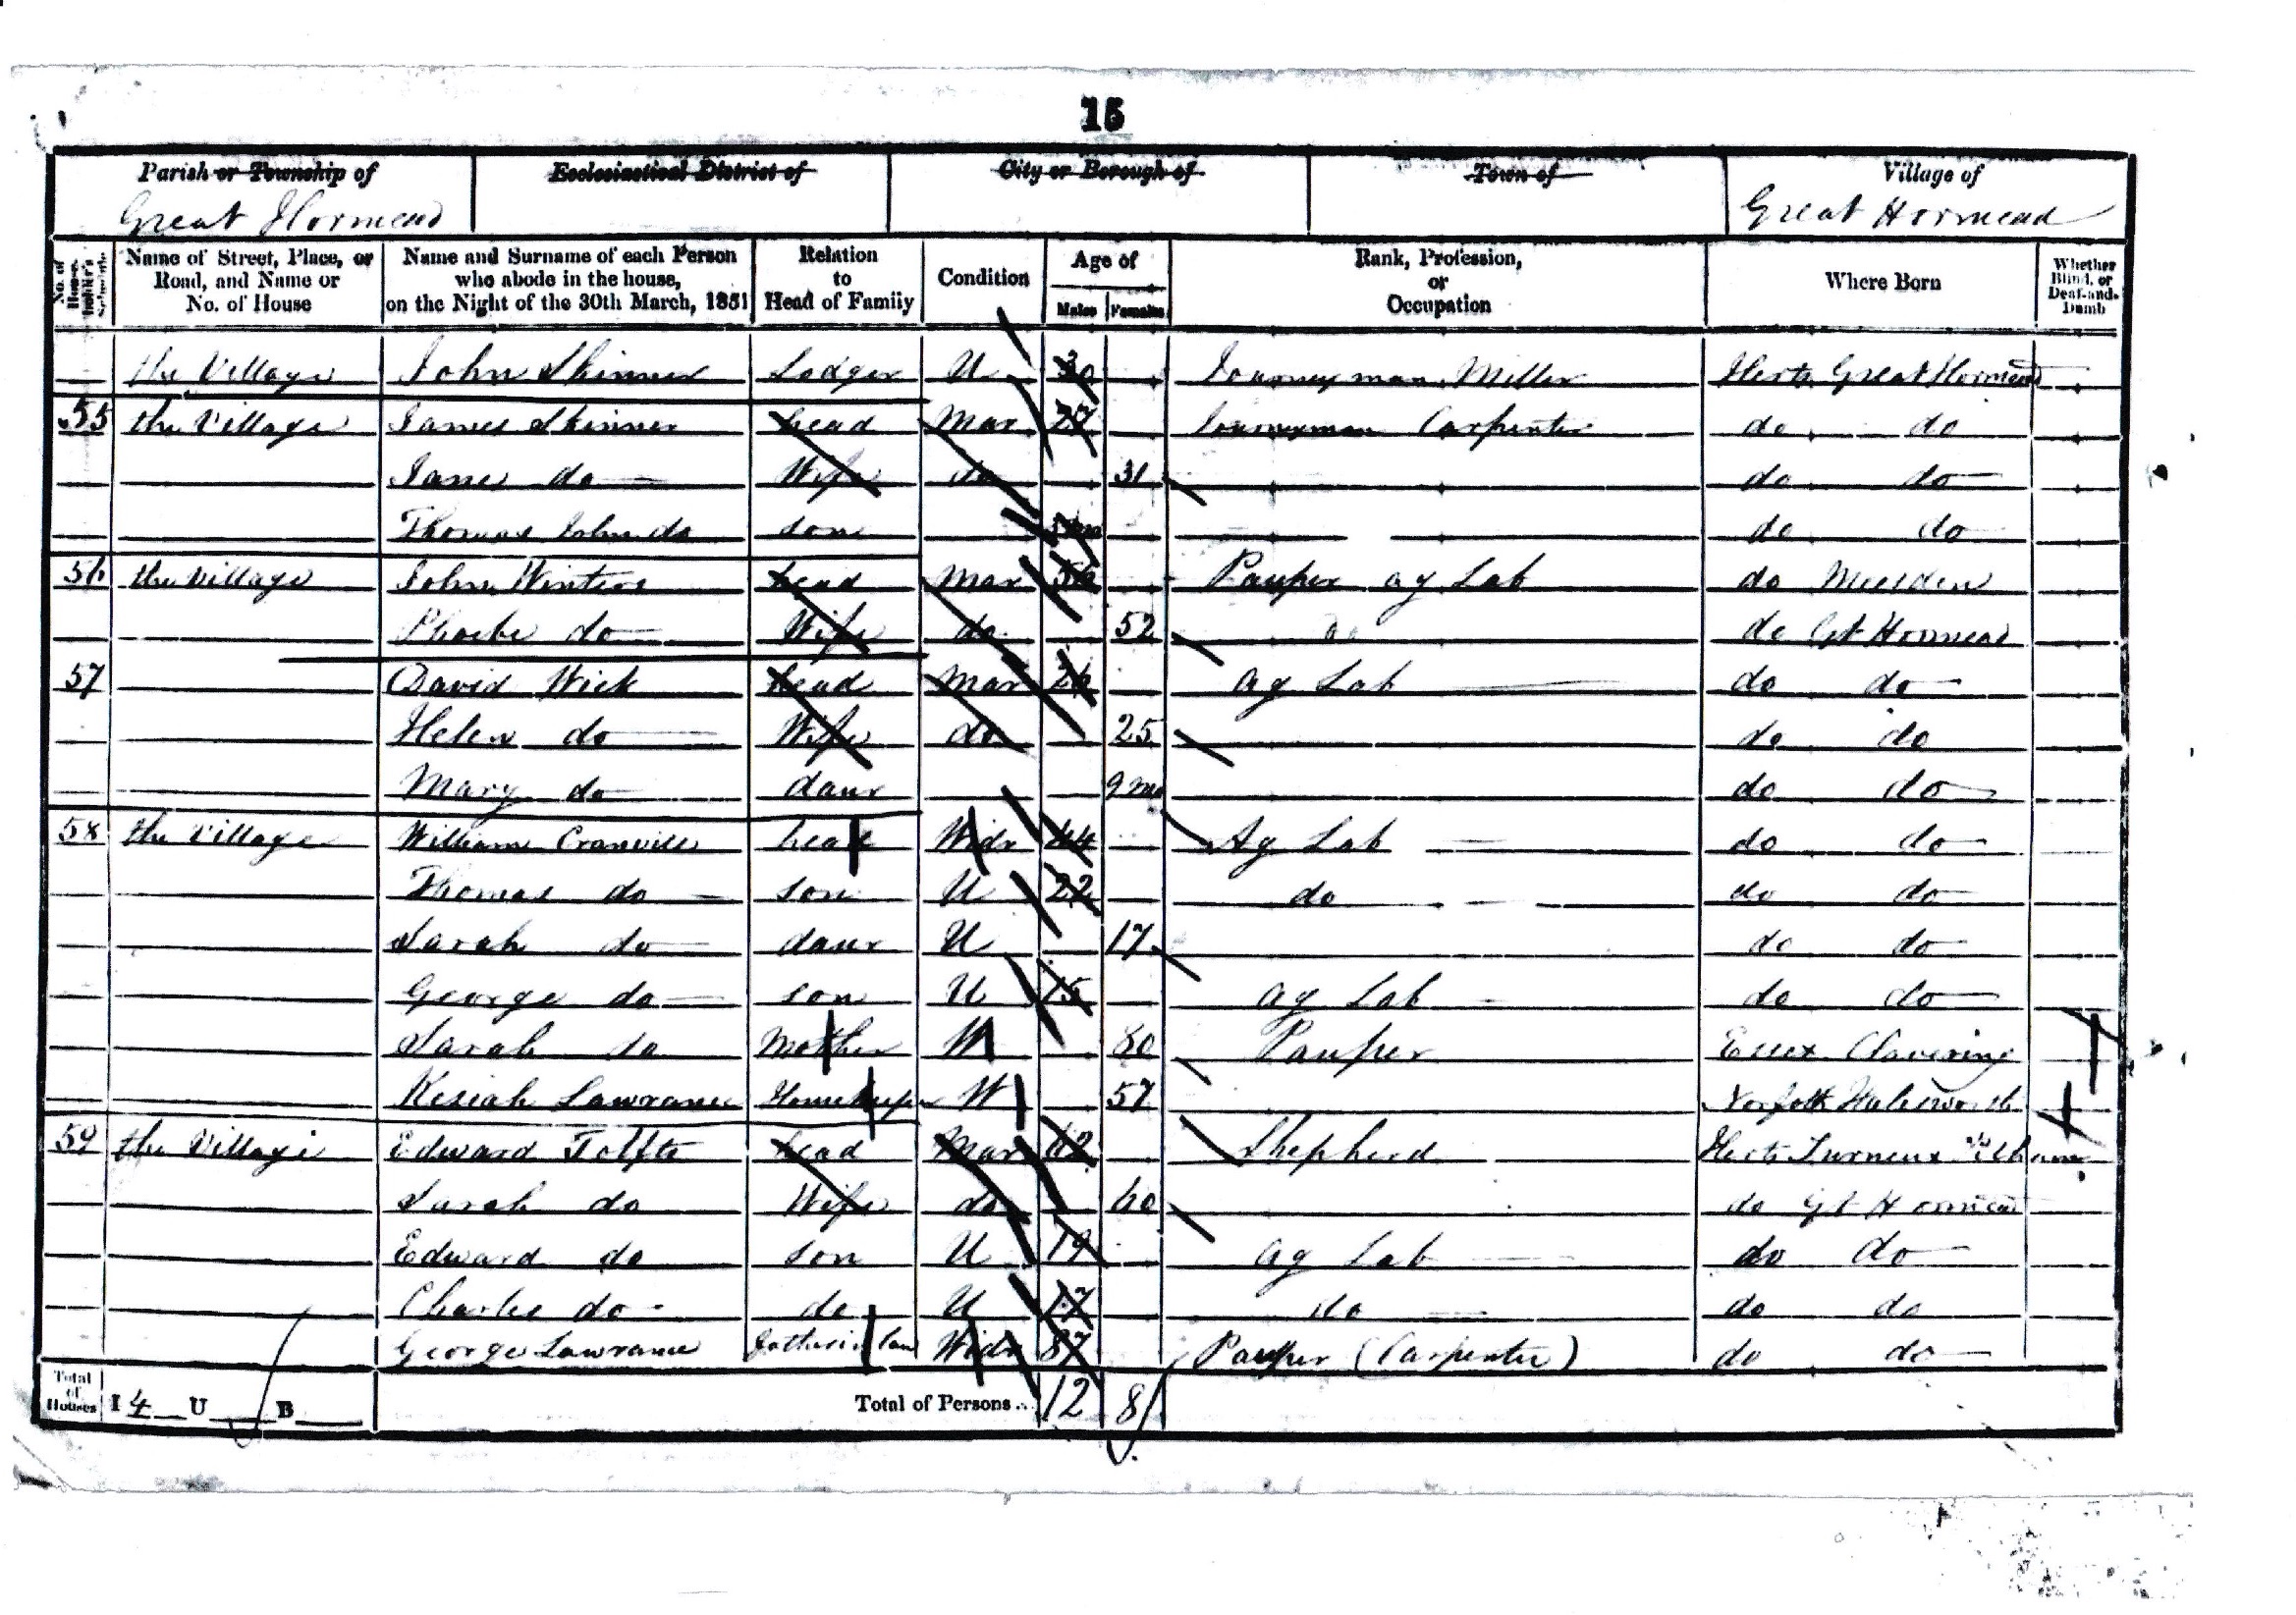 15
Parish or Township of Ecclesiastical District of City or Borough of Town of Village of
Great Hormead Great Hormead
No. of House-holder's Schedule Name of Street, Place, or Road, and Name or No. of House Name and Surname of each Person who abode in the house, on the Night of the 30th March, 1851 Relation to Head of Family Condition Age of Males Females Rank, Profession, or Occupation Where Born Whether Blind, or Deaf-and-Dumb
the Village John Skinner Lodger U 30 Journeyman Miller Herts Great Hormead
55 the Village James Skinner head Mar 27 Journeyman Carpenter do do
Jane do Wife do 31 do do
Thomas John do son do do
56 the Village John Winters head Mar 56 Pauper ag Lab do Meesden
Phoebe do Wife do 52 do Gt Hormead
57 David Wick head Mar 26 ag Lab do do
Helen do Wife do 25 do do
Mary do daur 9 mo do do
58 the Village William Cranville head Widr 44 Ag Lab do do
Thomas do son U 22 do do do
Sarah do daur U 17 do do
George do son U 15 ag Lab do do
Sarah do Mother W 80 Pauper Essex Clavering
Kesiah Lawrance Housekeeper W 57 Norfolk
59 the Village Edward Tolfte head Mar 62 Shepherd Herts Furneux Pelham
Sarah do Wife do 60 do Gt Hormead
Edward do son U 19 ag Lab do do
Charles do do U 17 do do do
George Lawrance father in law Widr 87 Pauper (Carpenter) do do
Total of Houses I 4 U B Total of Persons.. 12 8